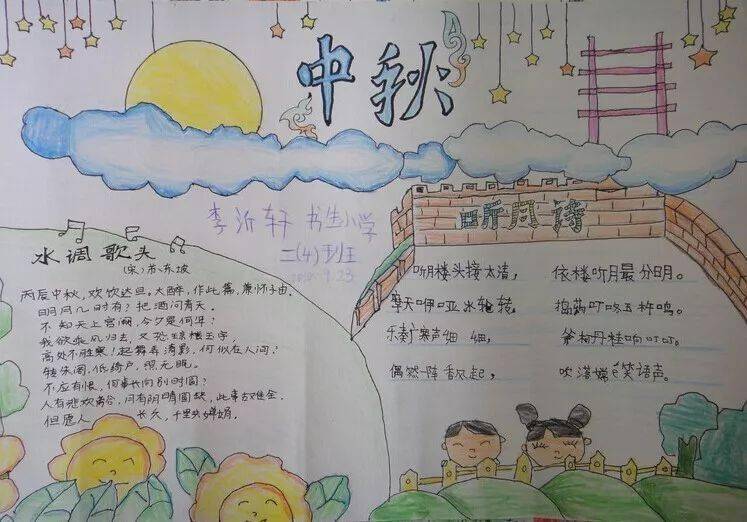 中秋
李沂轩 书生小学
二(4)班
9.23
听月诗
水调歌头
(宋)苏东坡
丙辰中秋,欢饮达旦,大醉,作此篇,兼怀子由。
明月几时有?把酒问青天。
不知天上宫阙,今夕是何年?
我欲乘风归去,又恐琼楼玉宇,
高处不胜寒!起舞弄清影,何似在人间?
转朱阁,低绮户,照无眠。
不应有恨,何事长向别时圆?
人有悲欢离合,月有阴晴圆缺,此事古难全。
但愿人 长久,千里共婵娟。
听月楼头接太清, 依楼听月最分明。
摩天咿哑冰轮转, 捣药叮咚玉杵鸣。
乐奏广寒声细细, 斧柯丹桂响叮叮。
偶然一阵香风起, 吹落嫦 笑语声。